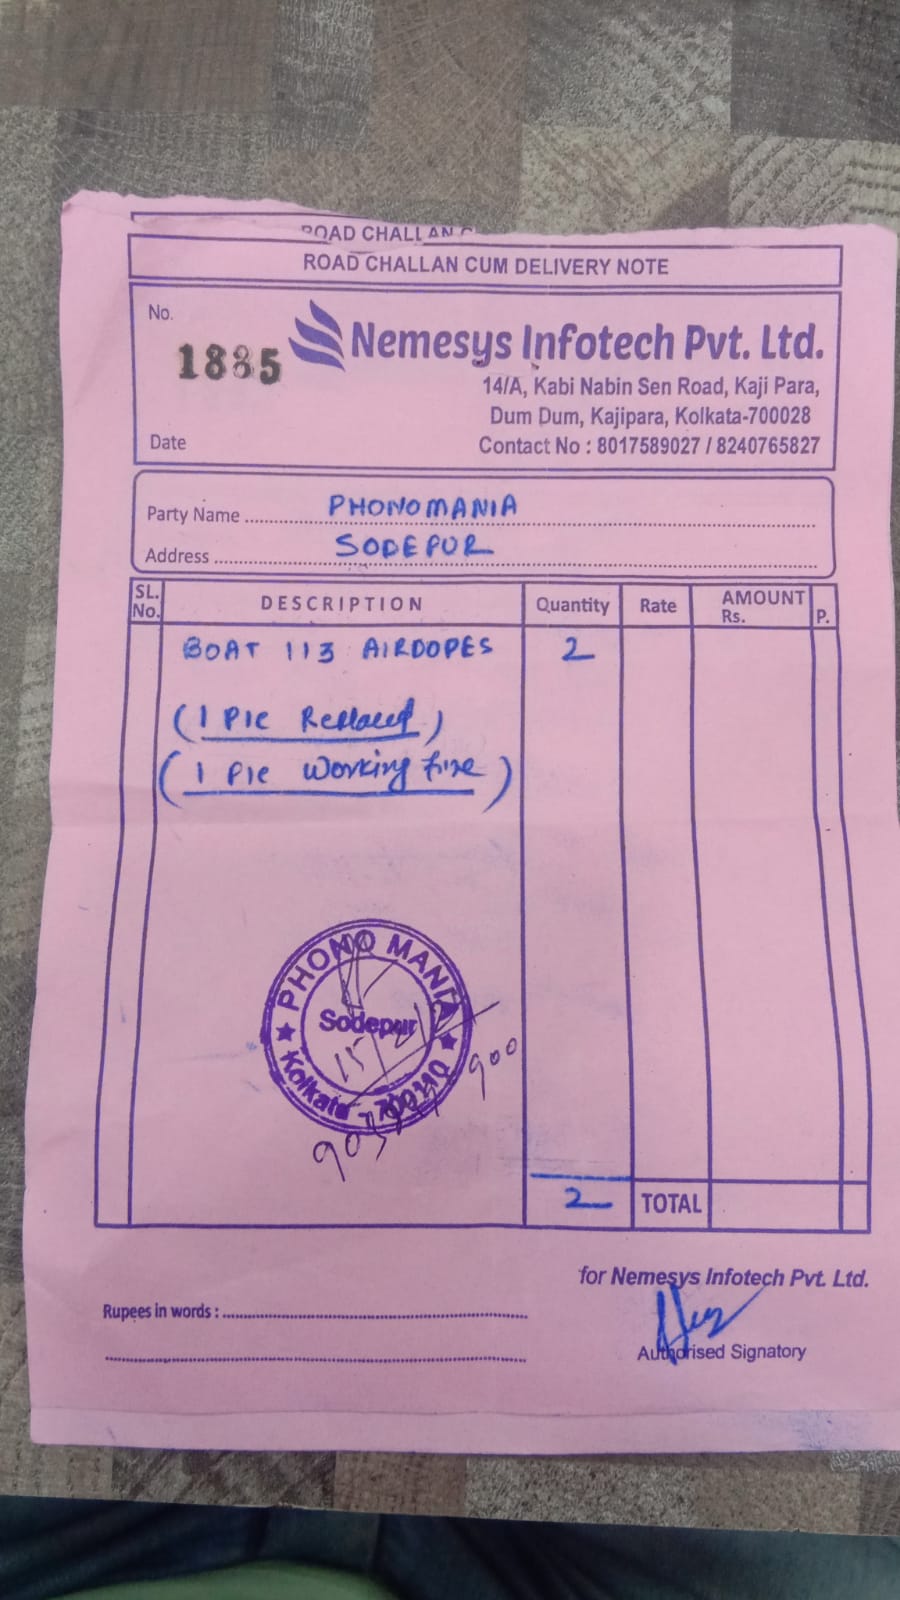 ROAD CHALLAN C
ROAD CHALLAN CUM DELIVERY NOTE
No.
1885
Nemesys Infotech Pvt. Ltd.
14/A, Kabi Nabin Sen Road, Kaji Para,
Dum Dum, Kajipara, Kolkata-700028
Date
Contact No : 8017589027 / 8240765827
Party Name PHONOMANIA
Address SODEPUR
SL. No. DESCRIPTION Quantity Rate AMOUNT Rs. P.
BOAT 113 AIRDOPES 2
(1 PIC Replaced)
(1 PIC Working fine)
PHONO MANIA
Sodepur
Kolkata - 700110
2 TOTAL
for Nemesys Infotech Pvt. Ltd.
Rupees in words :
Authorised Signatory